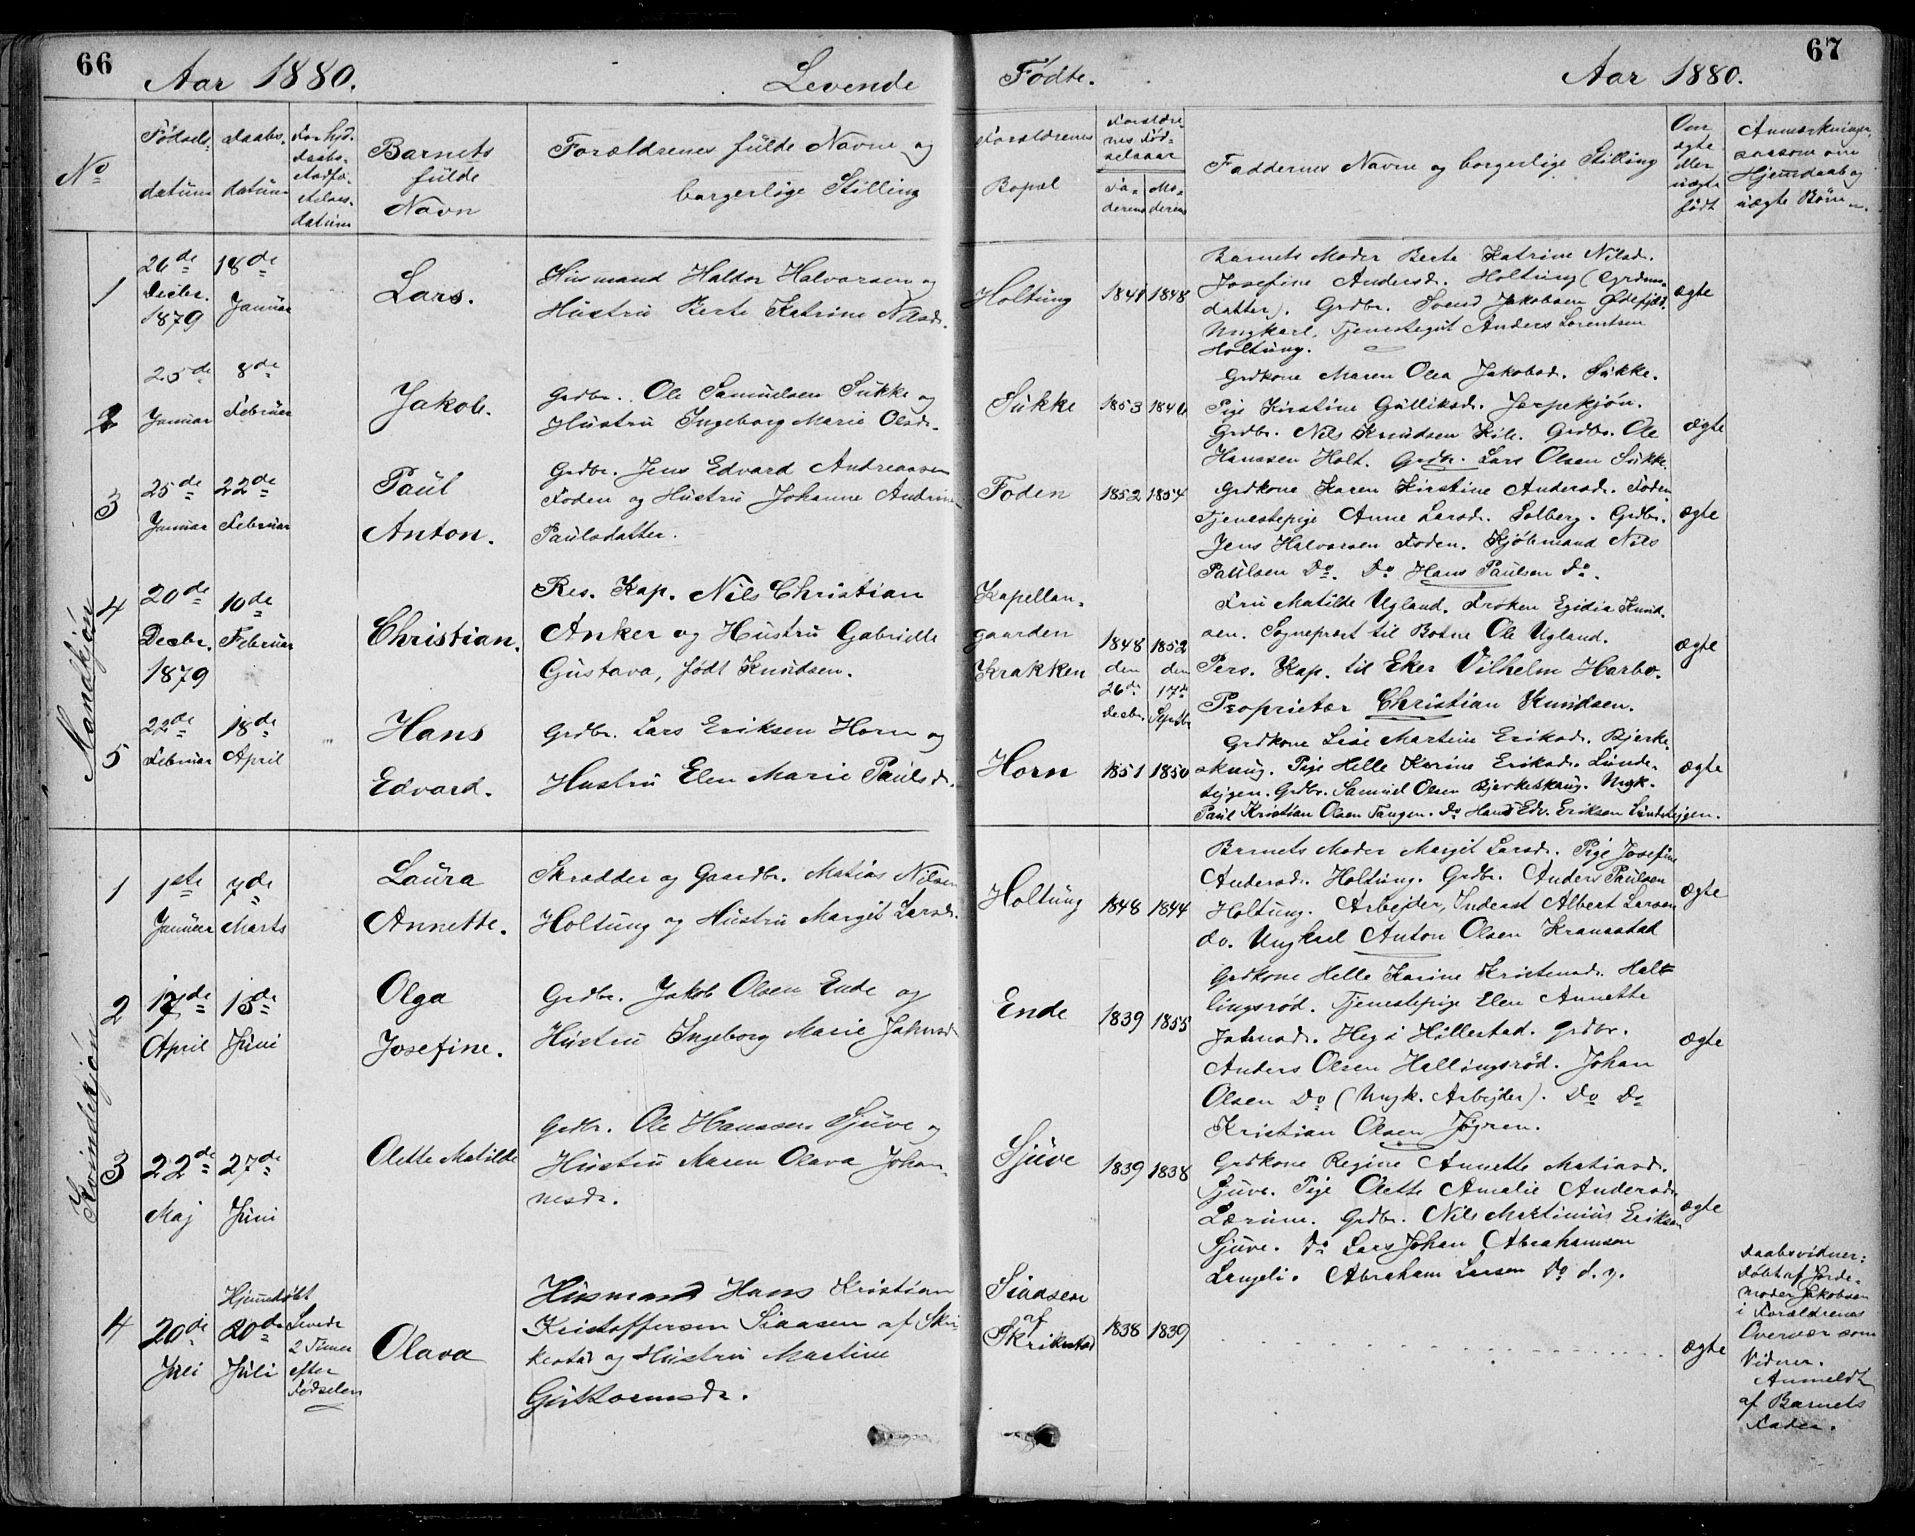 66
Aar 1880.
Levende
Fødte.
Aar 1880.
67
No
Fødsels-
datum
Daabs-
datum
Barnets
fulde
Navn
Forældrenes fulde Navne og
borgerlige Stilling
Forældrenes
Bopæl
Forældre-
nes Fød-
selsaar
Fa-
derens
Mo-
derens
Faddernes Navne og borgerlige Stilling
Om
ægte
eller
uægte
født
Anmærkninger,
saasom om
Hjemdaab og
uægte Børn
Mandkjøn
1
26de
Decbr.
1879
18de
Januar
Lars.
Husmand Haldor Halvorsen og
Hustru Berte Katrine Nilsdr.
Holtung
1841
1848
Barnets Moder Berte Katrine Nilsd.
Josefine Andersd. Holtung (Grdm.-
datter). Grdbr. Svend Jakobsen
Ungkarl. Tjenestegut Anders Lorentsen
Holtung.
ægte
2
25de
Januar
8de
Februar
Jakob.
Grdbr. Ole Samuelsen Sukke og
Hustru Ingeborg Marie Olsdr.
Sukke
1853
1846
Grdkone Maren Olea Jakobsd. Sukke.
Pige Kirstine Gulliksd. Jerpekjøn.
Grdbr. Nils Knudsen Kile. Grdbr. Ole
Hanssen Holt. Grdbr. Lars Olsen Sukke.
ægte
3
25de
Januar
22de
Februar
Paul
Anton.
Grdbr. Jens Edvard Andreassen
Foden og Hustru Johanne Andrine
Paulsdatter.
Foden
1852
1854
Grdkone Karen Kirstine Andersd. Foden
Tjenestepige Anne Larsd. Solberg. Grdbr.
Jens Halvorsen Foden. Kjøbmand Nils
Paulsen Do. Do Hans Paulsen Do.
ægte
4
20de
Decbr.
1879
10de
Februar
Christian.
Res. Kap. Nils Christian
Anker og Hustru Gabrielle
Gustava, født Knudsen.
Kapellan-
gaarden
Krakken
1848
den
26de
Decbr.
1852
den
17de
Septbr.
Fru Matilde Ugland. Frøken Egidia Knud-
sen. Sogneprest til Botne Ole Ugland.
Pers. Kap. til Eker Vilhelm Harbo.
Proprietær Christian Knudsen.
ægte
5
22de
Februar
18de
April
Hans
Edvard.
Grdbr. Lars Eriksen Horn og
Hustru Elen Marie Paulsd.
Horn
1851
1850
Grdkone Lise Martine Eriksd. Bjerke-
skaug. Pige Helle Karine Eriksd. Lunde-
tejgen. Grdbr. Samuel Olsen Bjerkeskaug. Ungk.
Paul Kristian Olsen Tangen. Do Hans Edv. Eriksen Lundetejgen.
ægte
Kvindekjøn
1
1ste
Januar
7de
Marts
Laura
Annette.
Skrædder og Gaardbr. Matias Nilsen
Holtung og Hustru Margit Larsd.
Holtung
1848
1844
Barnets Moder Margit Larsd. Pige Josefine
Andersd. Holtung. Grdbr. Anders Paulsen
Holtung. Arbejder, Inderst Albert Larsen
do. Ungkarl Anton Olsen Kransstad
ægte
2
17de
April
13de
Juni
Olga
Josefine.
Grdbr. Jakob Olsen Ende og
Hustru Ingeborg Marie
Ende
1839
1855
Grdkone Helle Karine Kristensd. Hal-
lingsrød. Tjenestepige Elen Annette
Hillestad. Grdbr.
Anders Olsen Hallingsrød. Johan
Olsen Do (Ungk. Arbejder). Do Do
Kristian Olsen
ægte
3
22de
Maj
27de
Juni
Olette Matilde
Grdbr. Ole Hanssen Sjuve og
Hustru Maren Olava Johan-
nesdr.
Sjuve
1839
1838
Grdkone Regine Annette Matiasd.
Sjuve. Pige Olette Amalie Andersd.
Lærum. Grdbr. Nils Martinius Eriksen
Sjuve. Do Lars Johan Abrahamsen
Langeli. Abraham Larsen Do d. y.
ægte
4
20de
Juli
Hjemdøbt
20de
Juli
Levede
2 Timer
efter
Fødselen
Olava
Husmand Hans Kristian
Kristoffersen Siaasen af Skri-
kestad og Hustru Martine
Guttormsdr.
Siaasen
af
Skrikestad
1838
1839
ægte
Daabsvidner:
Døbt af Jorde-
moder Jakobsen
i Forældrenes
Overvær som
Vidner.
Anmeldt
af Barnets
Fader.